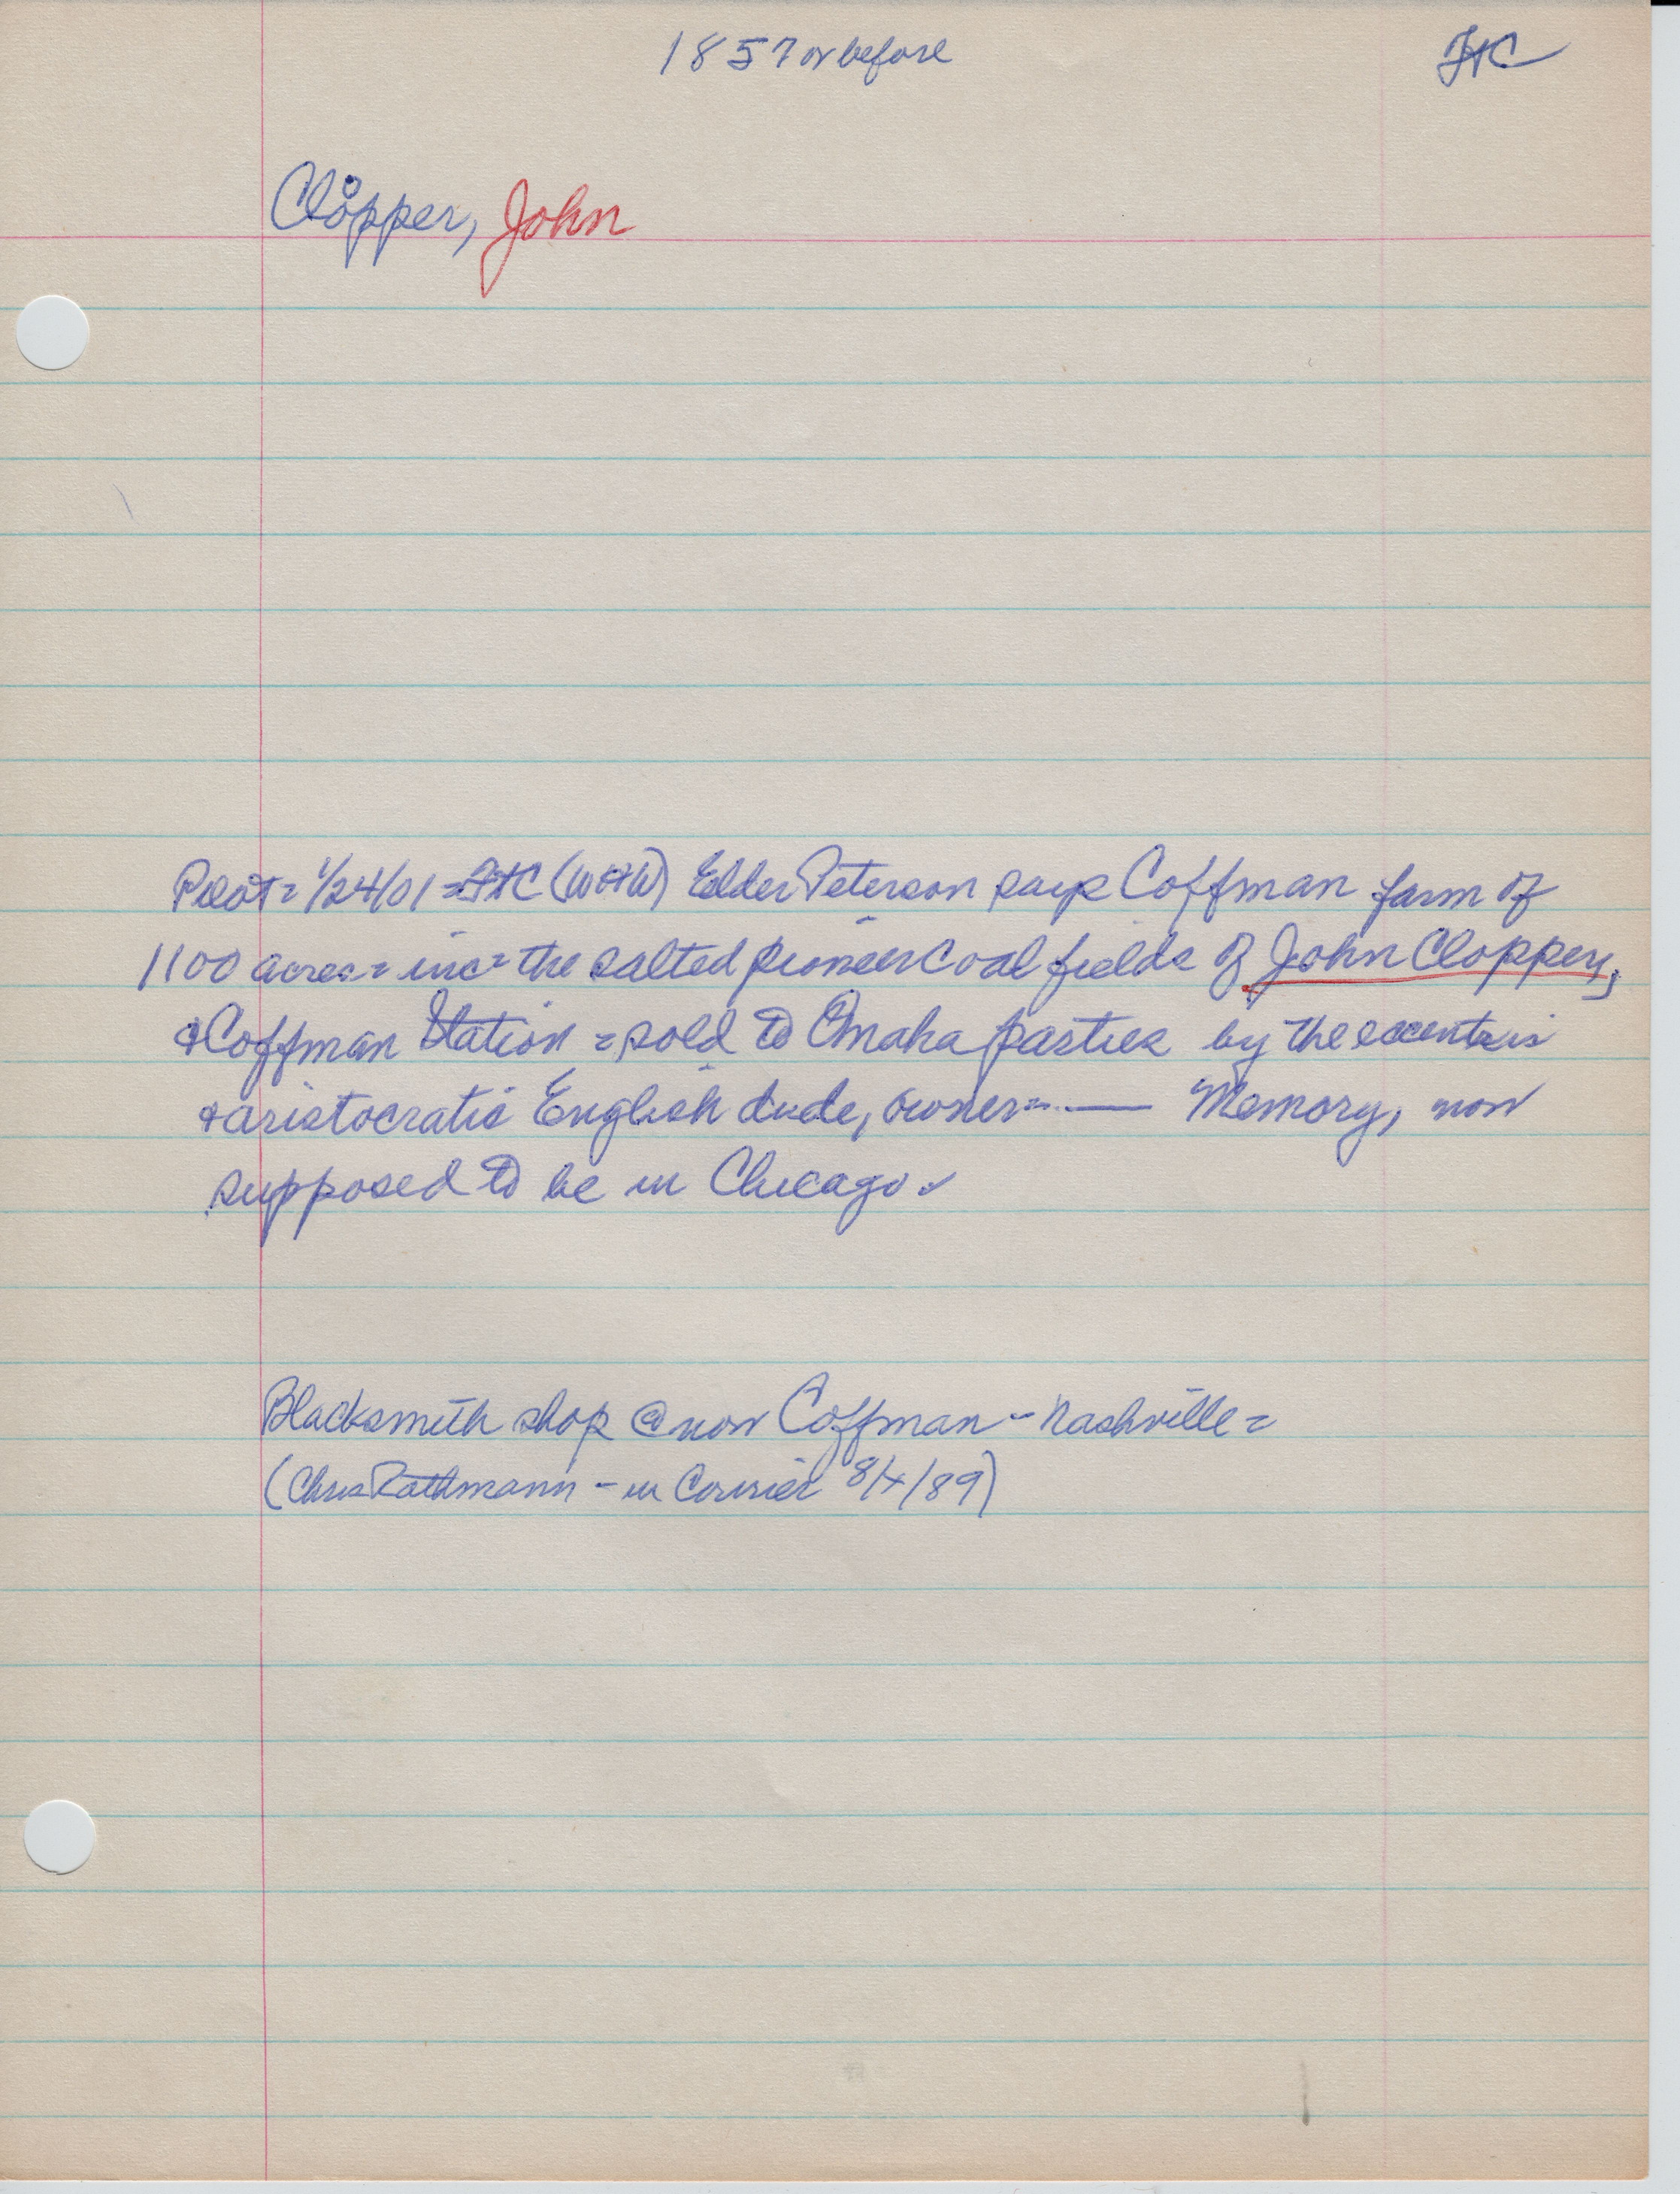 1857 or before FtC
Clopper, John
Pilot = 1/24/01 = FtC (WOtW) Elder Peterson says Coffman farm of
1100 acres = inc = the salted pioneer coal fields of John Clopper,
& Coffman Station = sold to Omaha parties by the eccentric
& aristocratic English dude, owner = — Memory, now
supposed to be in Chicago.
Blacksmith shop @ now Coffman - Nashville =
(Chris Rathmann - in Courier 8/4/89)